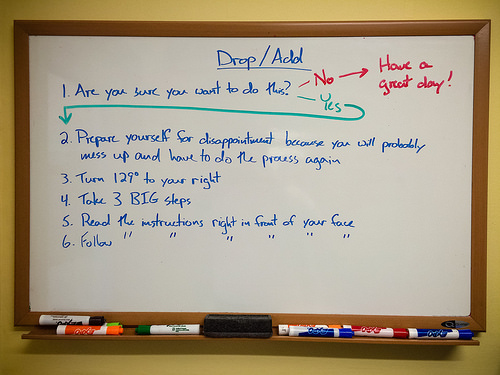 Drop/Add
1. Are you sure you want to do this? No → Have a
great day!
Yes
2. Prepare yourself for disappointment because you will probably
mess up and have to do the process again
3. Turn 129° to your right
4. Take 3 BIG steps
5. Read the instructions right in front of your face
6. Follow " " " " " "